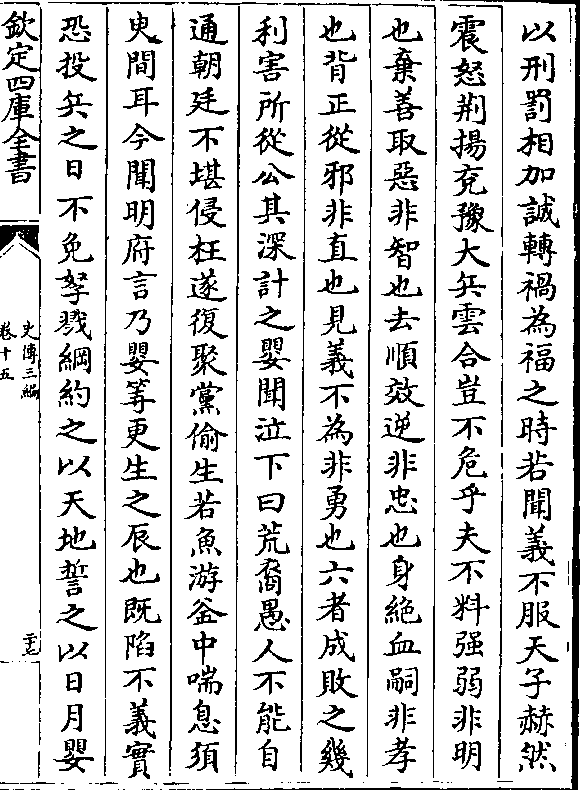 以刑罰相加誠轉禍為福之時若聞義不服天子赫然
震怒荆揚兖豫大兵雲合豈不危乎夫不料强弱非明
也棄善取惡非智也去順效逆非忠也身絶血嗣非孝
也背正從邪非直也見義不為非勇也六者成敗之幾
利害所從公其深計之嬰聞泣下曰荒裔愚人不能自
通朝廷不堪侵枉遂復聚黨偷生若魚游釡中喘息須
臾間耳今聞明府言乃嬰等更生之辰也既陷不義實
恐投兵之日不免孥戮綱約之以天地誓之以日月嬰
欽定四庫全書
史傳三編
卷十五
二十三